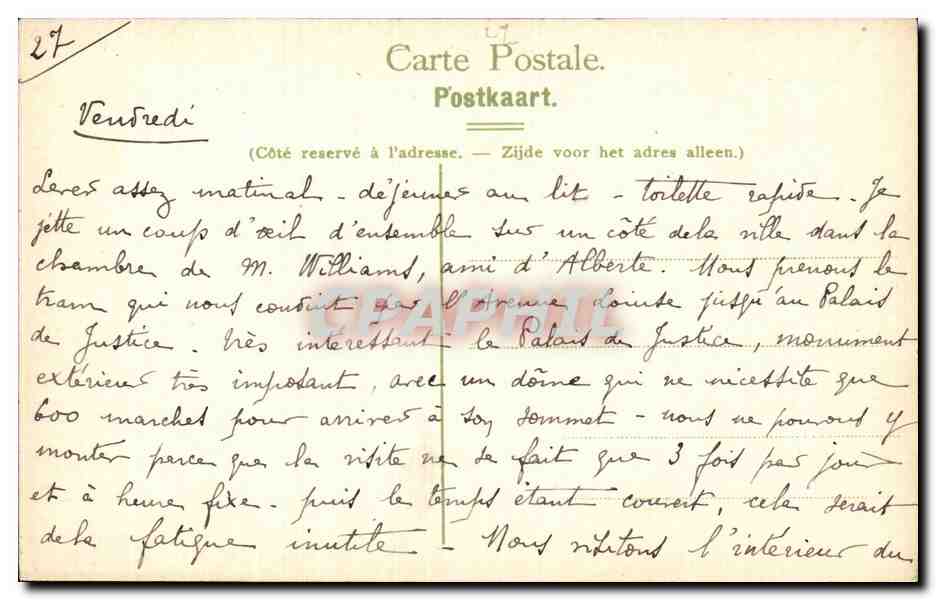 27
Carte Postale.
Postkaart.
Vendredi
(Côté reservé à l'adresse. — Zijde voor het adres alleen.)
Lever assez matinal - déjeuner au lit - toilette rapide. Je
jette un coup d'œil d'ensemble sur un côté de la ville dans la
chambre de M. Williams, ami d'Alberte. Nous prenons le
tram qui nous conduit par l'Avenue Louise jusqu'au Palais
de Justice. Très intéressant le Palais de Justice, monument
extérieur très imposant, avec un dôme qui ne nécessite que
600 marches pour arriver à son sommet - nous ne pouvons y
monter parce que la visite ne se fait que 3 fois par jour
et à heure fixe - puis le temps étant couvert, cela serait
de la fatigue inutile - Nous visitons l'intérieur du
CPAPHIL